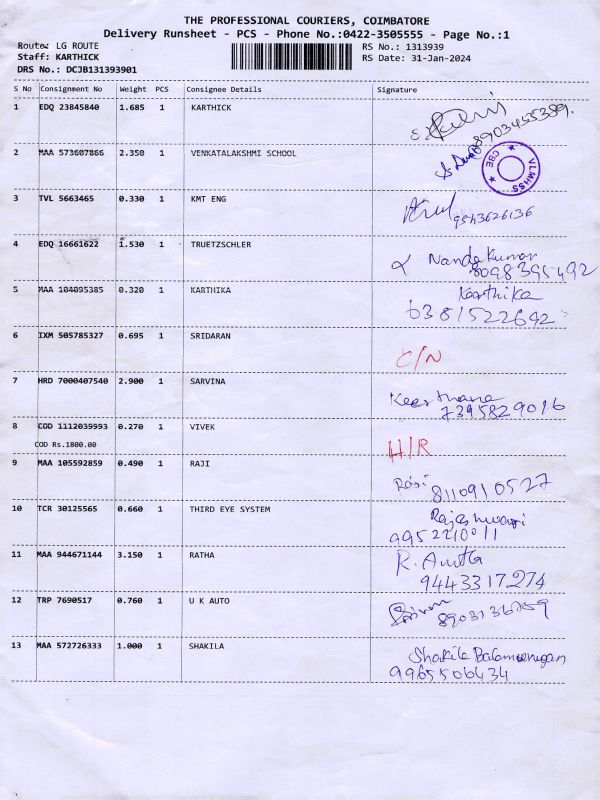 THE PROFESSIONAL COURIERS, COIMBATORE
Delivery Runsheet - PCS - Phone No.:0422-3505555 - Page No.:1
Route: LG ROUTE RS No.: 1313939
Staff: KARTHICK RS Date: 31-Jan-2024
DRS No.: DCJB131393901
S No Consignment No Weight PCS Consignee Details Signature
1 EDQ 23845840 1.685 1 KARTHICK
8903455389.
2 MAA 573607866 2.350 1 VENKATALAKSHMI SCHOOL
VLMHSS CBE
3 TVL 5663465 0.330 1 KMT ENG
9543626136
4 EDQ 16661622 1.530 1 TRUETZSCHLER
Nanda Kumar
8098395492
5 MAA 104095385 0.320 1 KARTHIKA Karthika
6381522642
6 IXM 505785327 0.695 1 SRIDARAN
C/N
7 HRD 7000407540 2.900 1 SARVINA
Keerthana
7395829016
8 COD 1112039993 0.270 1 VIVEK
COD Rs.1800.00 H/R
9 MAA 105592859 0.490 1 RAJI
8110910527
10 TCR 30125565 0.660 1 THIRD EYE SYSTEM
Rajeshwari
9952210011
11 MAA 944671144 3.150 1 RATHA
R.
9443317274
12 TRP 7690517 0.760 1 U K AUTO
8903136759
13 MAA 572726333 1.000 1 SHAKILA
Shakila Balamurugan
9965506434